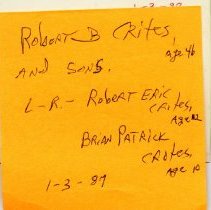 1-3-87
Robert B Crites,
age 46
AND SONS.
L-R- ROBERT ERIC
CRITES,
Age 12
BRIAN PATRICK
CRITES,
Age 10
1-3-87